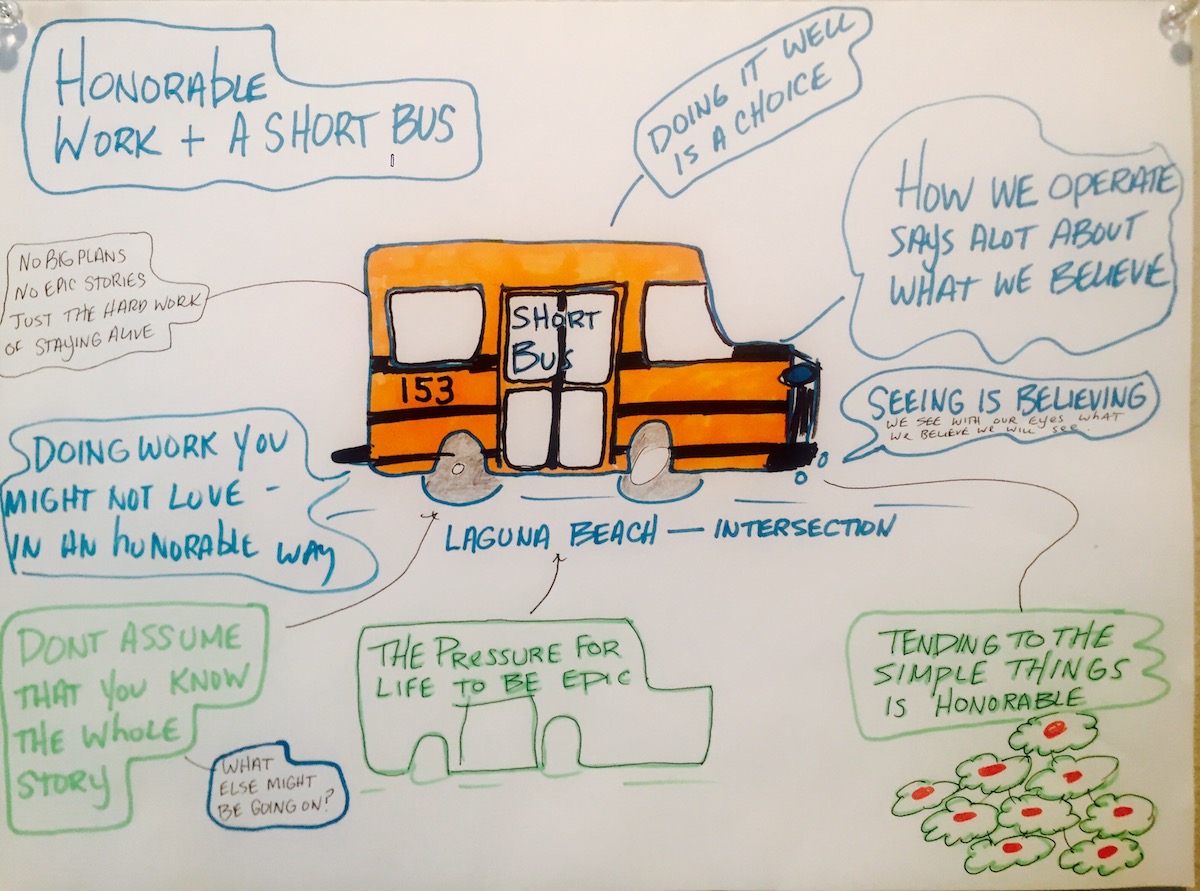 HONORABLE
WORK + A SHORT BUS
DOING IT WELL
IS A CHOICE
HOW WE OPERATE
SAYS ALOT ABOUT
WHAT WE BELIEVE
NO BIG PLANS
NO EPIC STORIES
JUST THE HARD WORK
OF STAYING ALIVE
SHORT
BUS
153
SEEING IS BELIEVING
WE SEE WITH OUR EYES WHAT
WE BELIEVE WE WILL SEE.
DOING WORK YOU
MIGHT NOT LOVE -
IN AN HUNORABLE WAY
LAGUNA BEACH — INTERSECTION
DONT ASSUME
THAT YOU KNOW
THE WHOLE
STORY
WHAT
ELSE MIGHT
BE GOING ON?
THE PRESSURE FOR
LIFE TO BE EPIC
TENDING TO THE
SIMPLE THINGS
IS HONORABLE